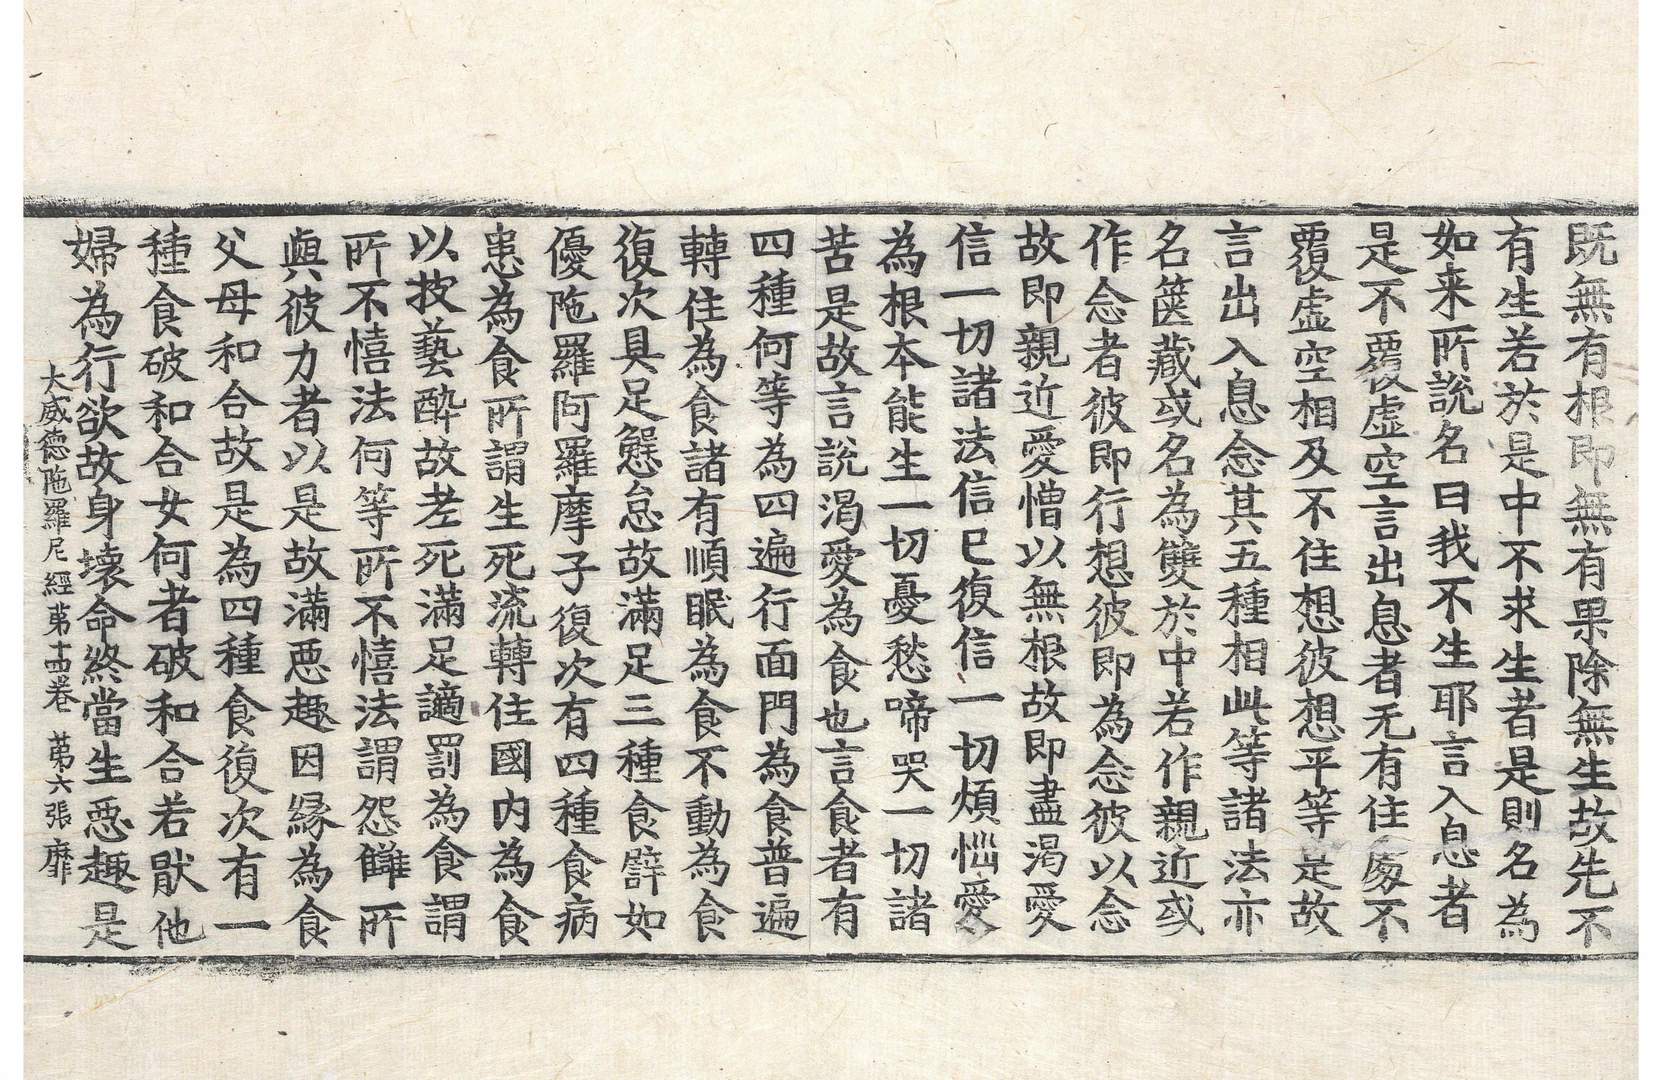 既無有根即無有果除無生故先不
有生若於是中不求生者是則名為
如来所說名曰我不生耶言入息者
是不覆虛空言出息者无有住處不
覆虛空相及不住想彼想平等是故
言出入息念其五種相此等諸法亦
名篋藏或名為雙於中若作親近或
作念者彼即行想彼即為念彼以念
故即親近愛憎以無根故即盡渴愛
信一切諸法信已復信一切煩惱愛
為根本能生一切憂愁啼哭一切諸
苦是故言說渴愛為食也言食者有
四種何等為四遍行面門為食普遍
轉住為食諸有順眠為食不動為食
復次具足懈怠故滿足三種食譬如
優陁羅阿羅摩子復次有四種食病
患為食所謂生死流轉住國內為食
以技藝醉故老死滿足謫罰為食謂
所不憘法何等所不憘法謂怨讎所
與彼力者以是故滿惡趣因縁為食
父母和合故是為四種食復次有一
種食破和合女何者破和合若猒他
婦為行欲故身壞命終當生惡趣是
大威德陁羅尼經第十四卷 第六張 靡